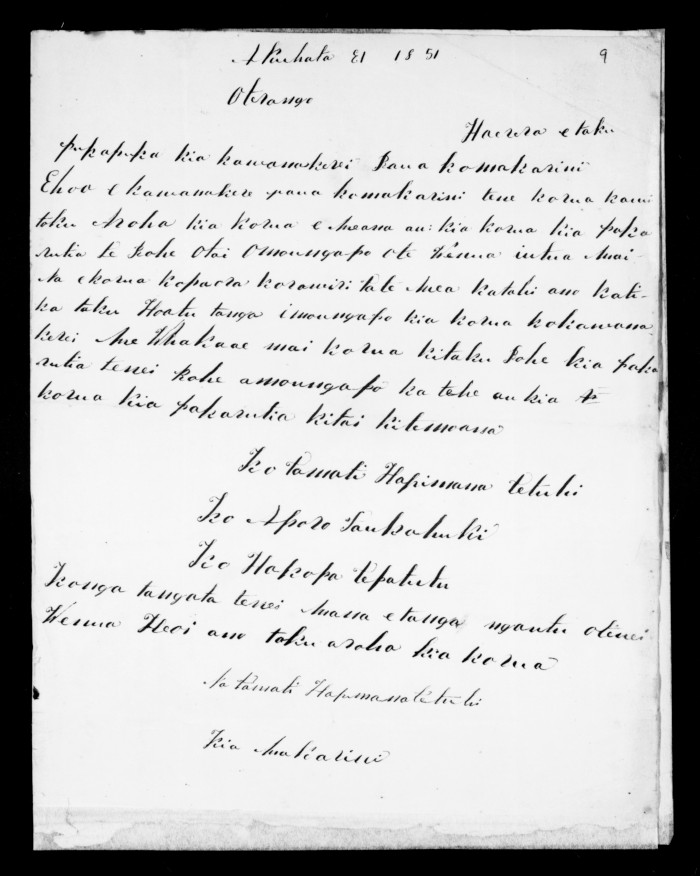 Akuhata 31 1851 9
Oterango
Haerera etaku
pukapuka kia kawanakerei Raua komakarini
Ehoa E kawanakere raua komakarini tene korua kanui
toku Aroha kia korua e Meana au: kia korua kia paka
rutia te Rohe Otai Omoungapo Ote Wenua iutua Mai-
Na ekorua korawiri tate Mea katahi ano kati-
ka taku Hoatu tanga imoungapo kia korua kokawana-
kerei Me Whakaae mai korua kitaku Rohe kia paka
rutia tenei Rohe amoungapo ka tohe au kia
korua kia pakarutia kitai kitemoana
Ko tamati Hapimana tetuhi
Ko Aporo Taukahuki
Ko Hakopa tepatutu
Konga tangata tenei Mana etanga ngautu otenei
Wenua Heoi ano taku aroha kia korua
Na tamati Hapimanatetuhi
Kia Makarini